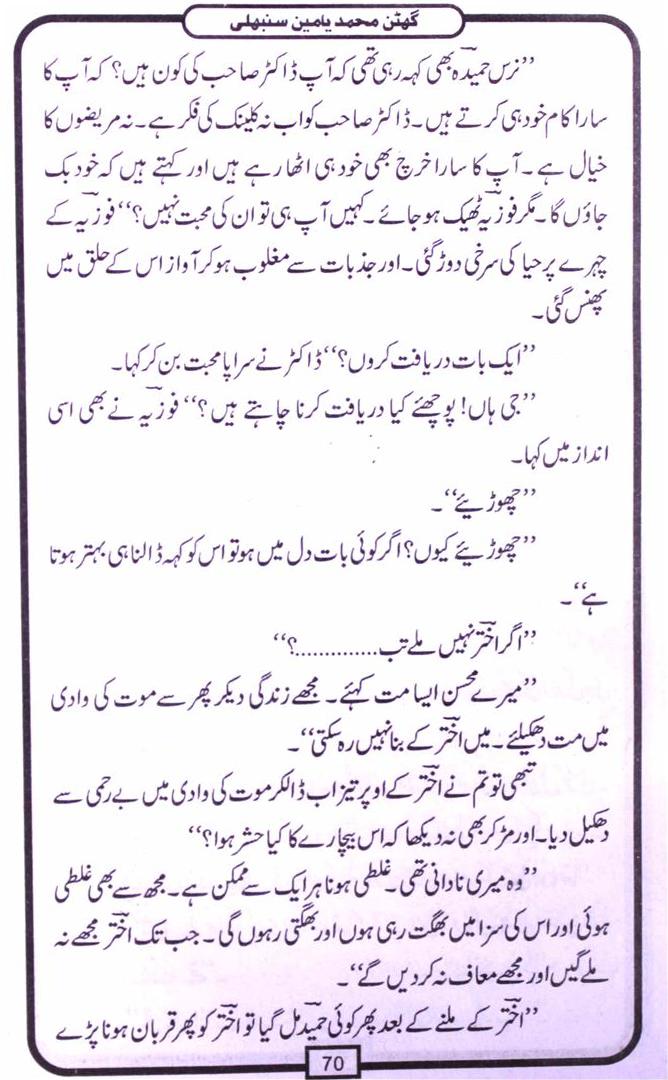 گھٹن محمد یامین سنبھلی
’’نرس حمیدہ بھی کہہ رہی تھی کہ آپ ڈاکٹر صاحب کی کون ہیں؟ کہ آپ کا
سارا کام خود ہی کرتے ہیں۔ ڈاکٹر صاحب کو اب نہ کلینک کی فکر ہے۔ نہ مریضوں کا
خیال ہے۔ آپ کا سارا خرچ بھی خود ہی اٹھا رہے ہیں اور کہتے ہیں کہ خود بک
جاؤں گا۔ مگر فوزیہ ٹھیک ہو جائے۔ کہیں آپ ہی تو ان کی محبت نہیں؟‘‘ فوزیہ کے
چہرے پر حیا کی سرخی دوڑ گئی۔ اور جذبات سے مغلوب ہو کر آواز اس کے حلق میں
پھنس گئی۔
’’ایک بات دریافت کروں؟‘‘ ڈاکٹر نے سراپا محبت بن کر کہا۔
’’جی ہاں! پوچھئے کیا دریافت کرنا چاہتے ہیں؟‘‘ فوزیہ نے بھی اسی
انداز میں کہا۔
’’چھوڑیئے‘‘۔
’’چھوڑیئے کیوں؟ اگر کوئی بات دل میں ہو تو اس کو کہہ ڈالنا ہی بہتر ہوتا
ہے‘‘۔
’’اگر اختر نہیں ملے تب..............؟‘‘
’’میرے محسن ایسا مت کہئے۔ مجھے زندگی دیکر پھر سے موت کی وادی
میں مت دھکیلئے۔ میں اختر کے بنا نہیں رہ سکتی‘‘۔
تبھی تو تم نے اختر کے اوپر تیزاب ڈالکر موت کی وادی میں بے رحمی سے
دھکیل دیا۔ اور مڑ کر بھی نہ دیکھا کہ اس بیچارے کا کیا حشر ہوا؟‘‘
’’وہ میری نادانی تھی۔ غلطی ہونا ہر ایک سے ممکن ہے۔ مجھ سے بھی غلطی
ہوئی اور اس کی سزا میں بھگت رہی ہوں اور بھگتی رہوں گی۔ جب تک اختر مجھے نہ
ملے گیں اور مجھے معاف نہ کر دیں گے‘‘۔
’’اختر کے ملنے کے بعد پھر کوئی حمید مل گیا تو اختر کو پھر قربان ہونا پڑے
70